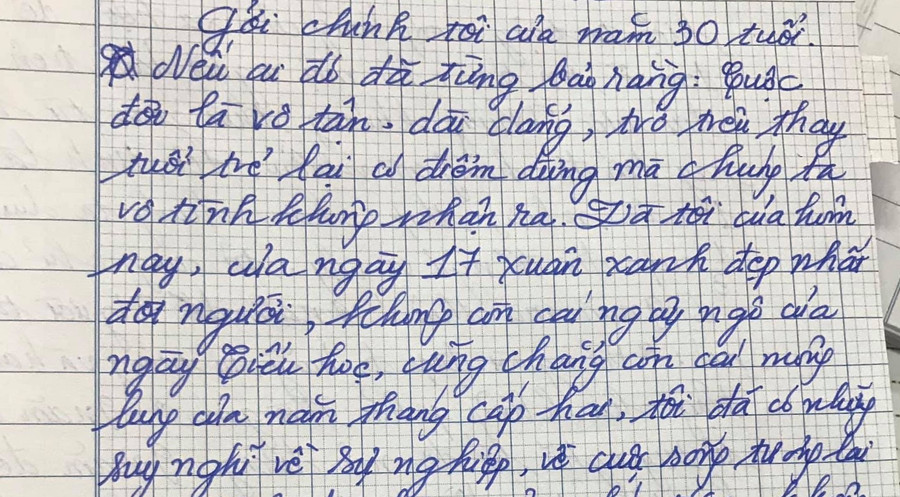 Gởi chính tôi của năm 30 tuổi.
Nếu ai đó đã từng bảo rằng: Cuộc
đời là vô tận, dài dẵng, trớ trêu thay
tuổi trẻ lại có điểm dừng mà chúng ta
vô tình không nhận ra. Và tôi của hôm
nay, của ngày 17 xuân xanh đẹp nhất
đời người, không còn cái ngây ngô của
ngày Tiểu học, cũng chẳng còn cái mông
lung của năm tháng cấp hai, tôi đã có những
suy nghĩ về sự nghiệp, về cuộc sống tương lai